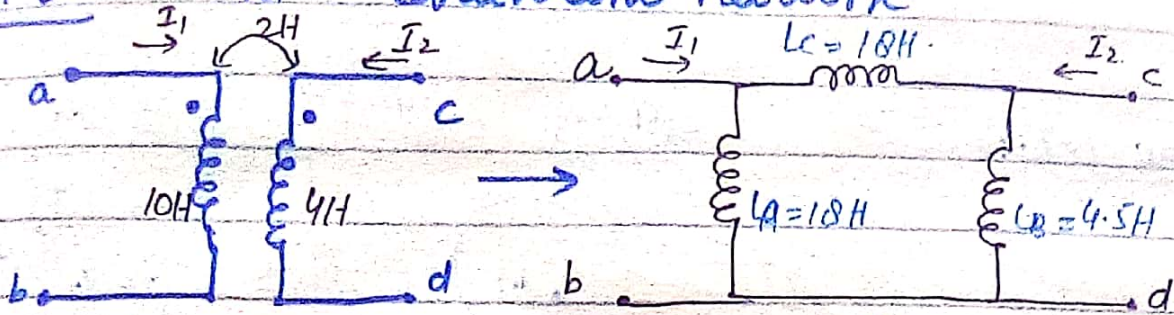 Network
I1 2H I2
a c
10H 4H
b d
I1 Lc = 18H. I2.
a c
LA = 18H LB = 4.5H
b d